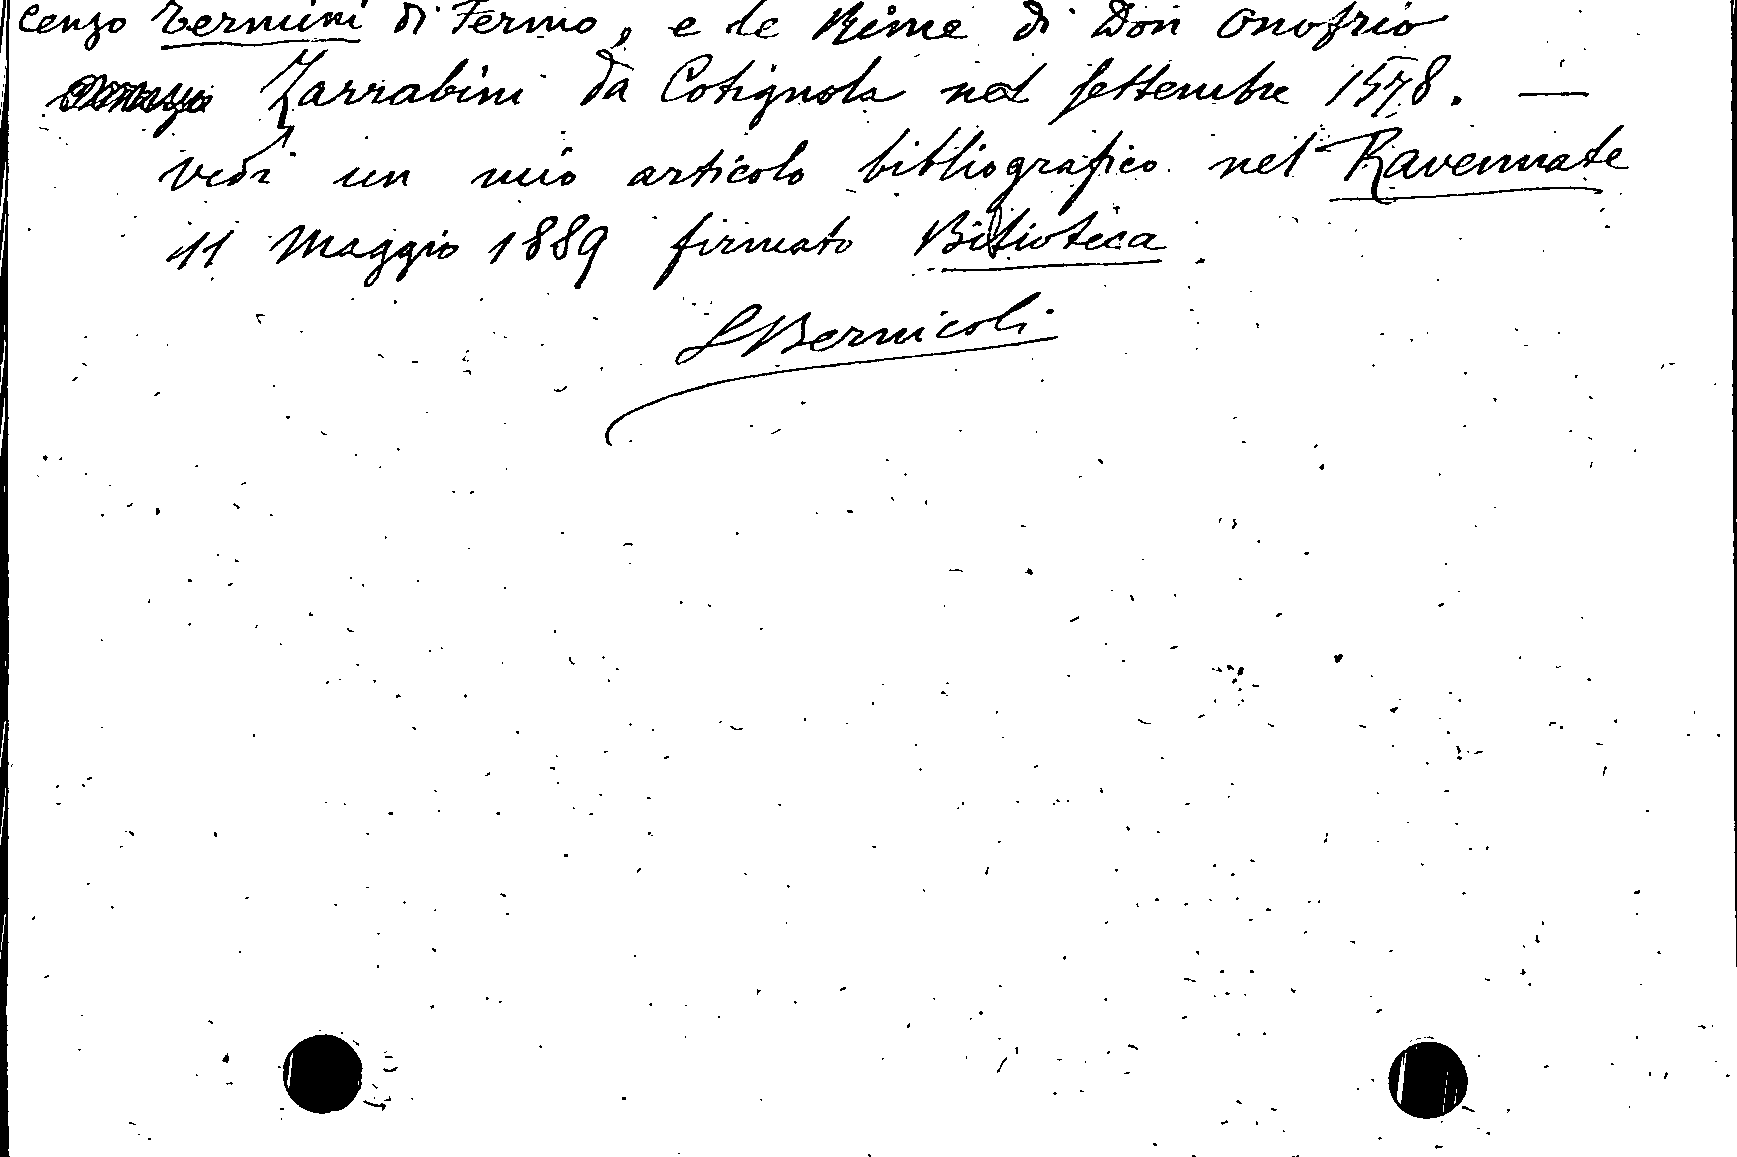 cenzo Termini di Fermo, e le Rime di Don Onofrio
Zarrabini da Cotignola nel settembre 1578. —
vedi un mio articolo bibliografico nel Ravennate
11 Maggio 1889 firmato Bitioteca.
SBernicoli